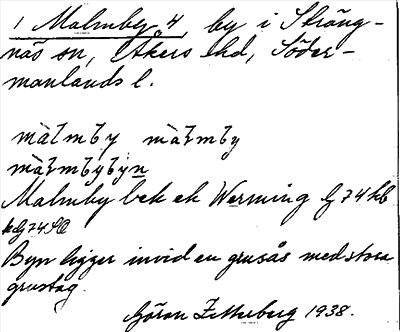 1 Malmby 4, by i Sträng-
näs sn, Åkers hd, Söder-
manlands l.
màlmby màlmby
màlmbybyn
Malmby bek ek Werming G 74 hb
Byn ligger invid en grusås med stora
grustag.
Göran Zetterberg 1938.